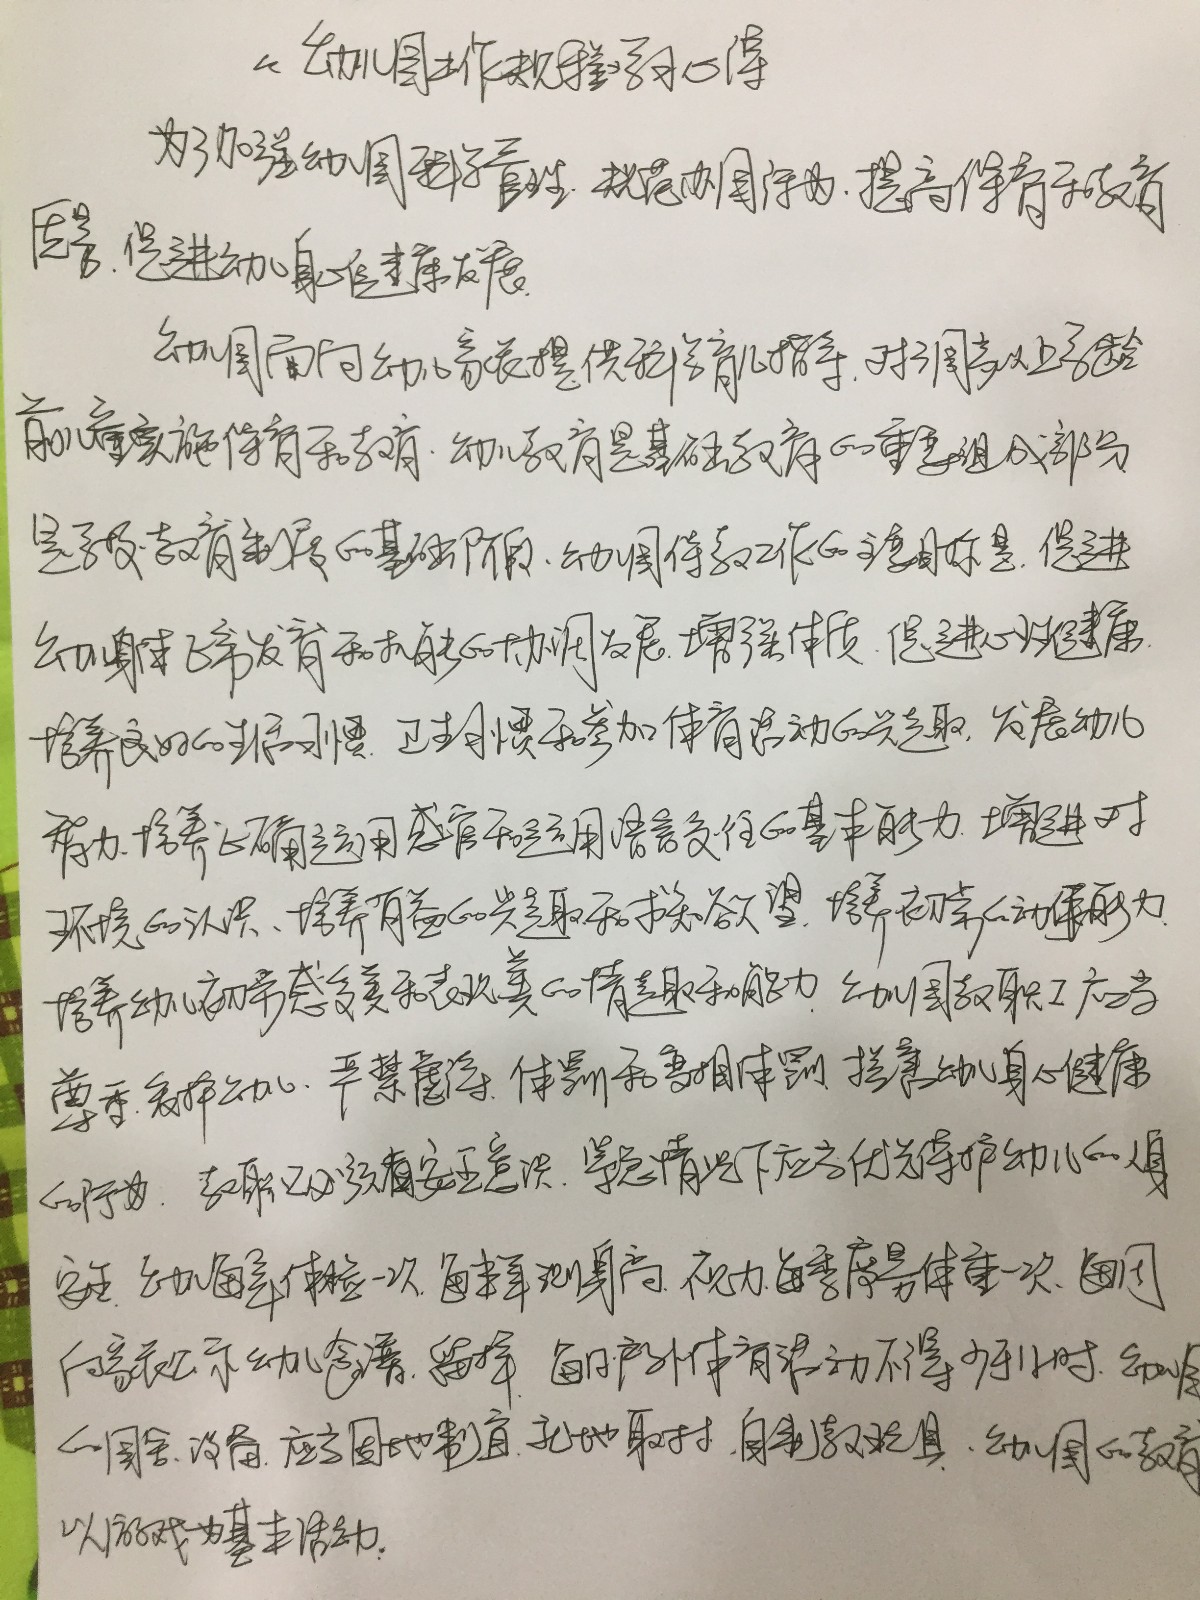 《幼儿园工作规程》学习心得
为了加强幼儿园科学管理、规范办园行为、提高保育和教育
质量、促进幼儿身心健康发展。
幼儿园面向幼儿家长提供科学育儿指导、对3周岁以上学龄
前儿童实施保育和教育。幼儿教育是基础教育的重要组成部分
是学校教育制度的基础阶段、幼儿园保教工作的主要目标是、促进
幼儿身体正常发育和机能的协调发展、增强体质、促进心理健康、
培养良好的生活习惯、卫生习惯和参加体育活动的兴趣、发展幼儿
智力、培养正确运用感官和运用语言交往的基本能力、增进对
环境的认识、培养有益的兴趣和求知欲望、培养初步的动手能力、
培养幼儿初步感受美和表现美的情趣和能力 幼儿园教职工应当
尊重、爱护幼儿、严禁虐待、体罚和变相体罚 损害幼儿身心健康
的行为、教职工必须有安全意识、紧急情况下应当优先保护幼儿的人身
安全、幼儿每年体检一次 每半年测身高、视力、每季度量体重一次、每周
向家长公示幼儿食谱、留样、每日户外体育活动不得少于1小时、幼儿园
的园舍、设备、应当因地制宜、就地取材、自制教玩具、幼儿园的教育
以游戏为基本活动。